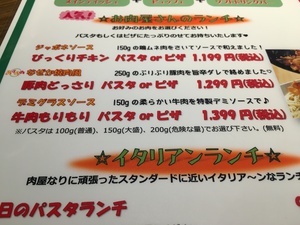 人気!
お肉屋さんのランチ
お好みのお肉をお選びください!
パスタもしくはピザにたっぷりのせてお持ちいたします♡
ジャポネソース
150gの鶏ムネ肉をさいてソースで和えました!
びっくりチキン パスタ or ピザ 1,199円(税込)
250gのぷりぷり豚肉を旨辛ダレで絡めました♡
豚肉どっさり パスタ or ピザ 1,299円(税込)
デミグラスソース
150gの柔らかい牛肉を特製デミソースで♪
牛肉もりもり パスタ or ピザ 1,399円(税込)
※パスタは100g(普通)、150g(大盛)、200g(危険な量)でお選び下さい。(無料)
☆イタリアンランチ☆
肉屋なりに頑張ったスタンダードに近いイタリア~ンなランチ
日のパスタランチ